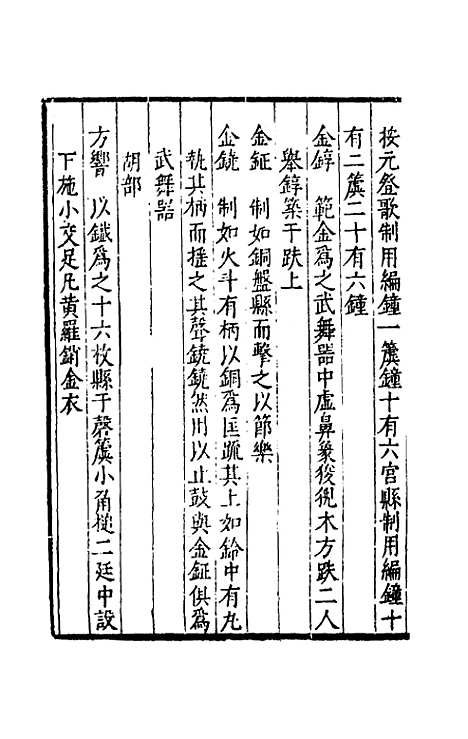 按元登歌制用編鐘一簴鐘十有六宮縣制用編鐘十
有二簴二十有六鐘
金錞　範金爲之武舞器中虛鼻象狻猊木方趺二人
舉錞築于趺上
金鉦　制如銅盤縣而擊之以節樂
金鐃　制如火斗有柄以銅爲匡疏其上如鈴中有丸
執其柄而揺之其聲鐃鐃然用以止鼓與金鉦俱爲
武舞器
胡部
方響　以鐵爲之十六枚縣于磬簴小角槌二廷中設
下施小交足几黄羅銷金衣